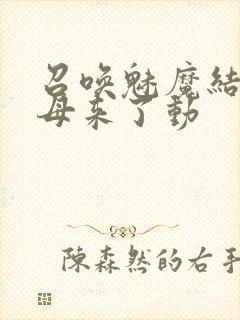 召唤魅魔结
母来了动
陳森然的右手